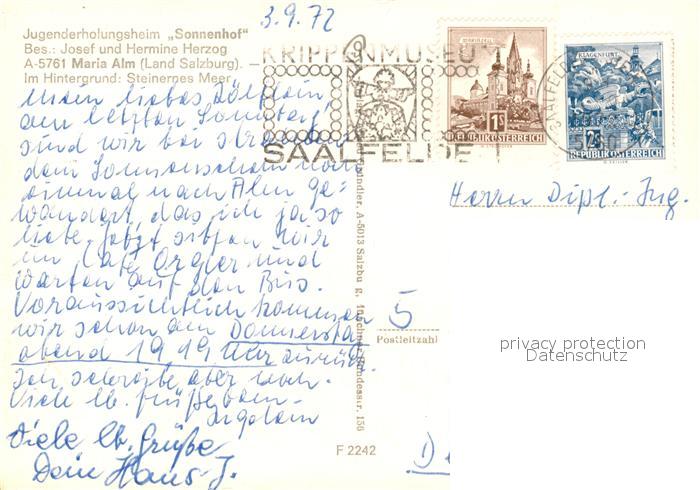 Jugenderholungsheim „Sonnenhof"
Bes.: Josef und Hermine Herzog
A-5761 Maria Alm (Land Salzburg).
Im Hintergrund: Steinernes Meer
3.9.72
KRIPPENMUSEUM
SAALFELDEN
MARIAZELL
1S
REPUBLIK ÖSTERREICH
KLAGENFURT
2S
REPUBLIK ÖSTERREICH
Mein liebes
am letzten Sonntag
sind wir bei strahlen
dem Sonnenschein noch
einmal nach Alm ge-
wandert, das ich ja so
liebe. Jetzt sitzen wir
im Café und
warten auf den Bus.
Voraussichtlich kommen
wir schon am Donnerstag
abend 19,19 Uhr zurück.
Ich schreibe aber noch.
Viele lb. Grüße
Viele lb. Grüße
Dein Hans-J.
A-5013 Salzburg, Münchner Bundesstr. 156
Herrn Dipl.-Ing.
5
Postleitzahl
privacy protection
Datenschutz
F 2242
D